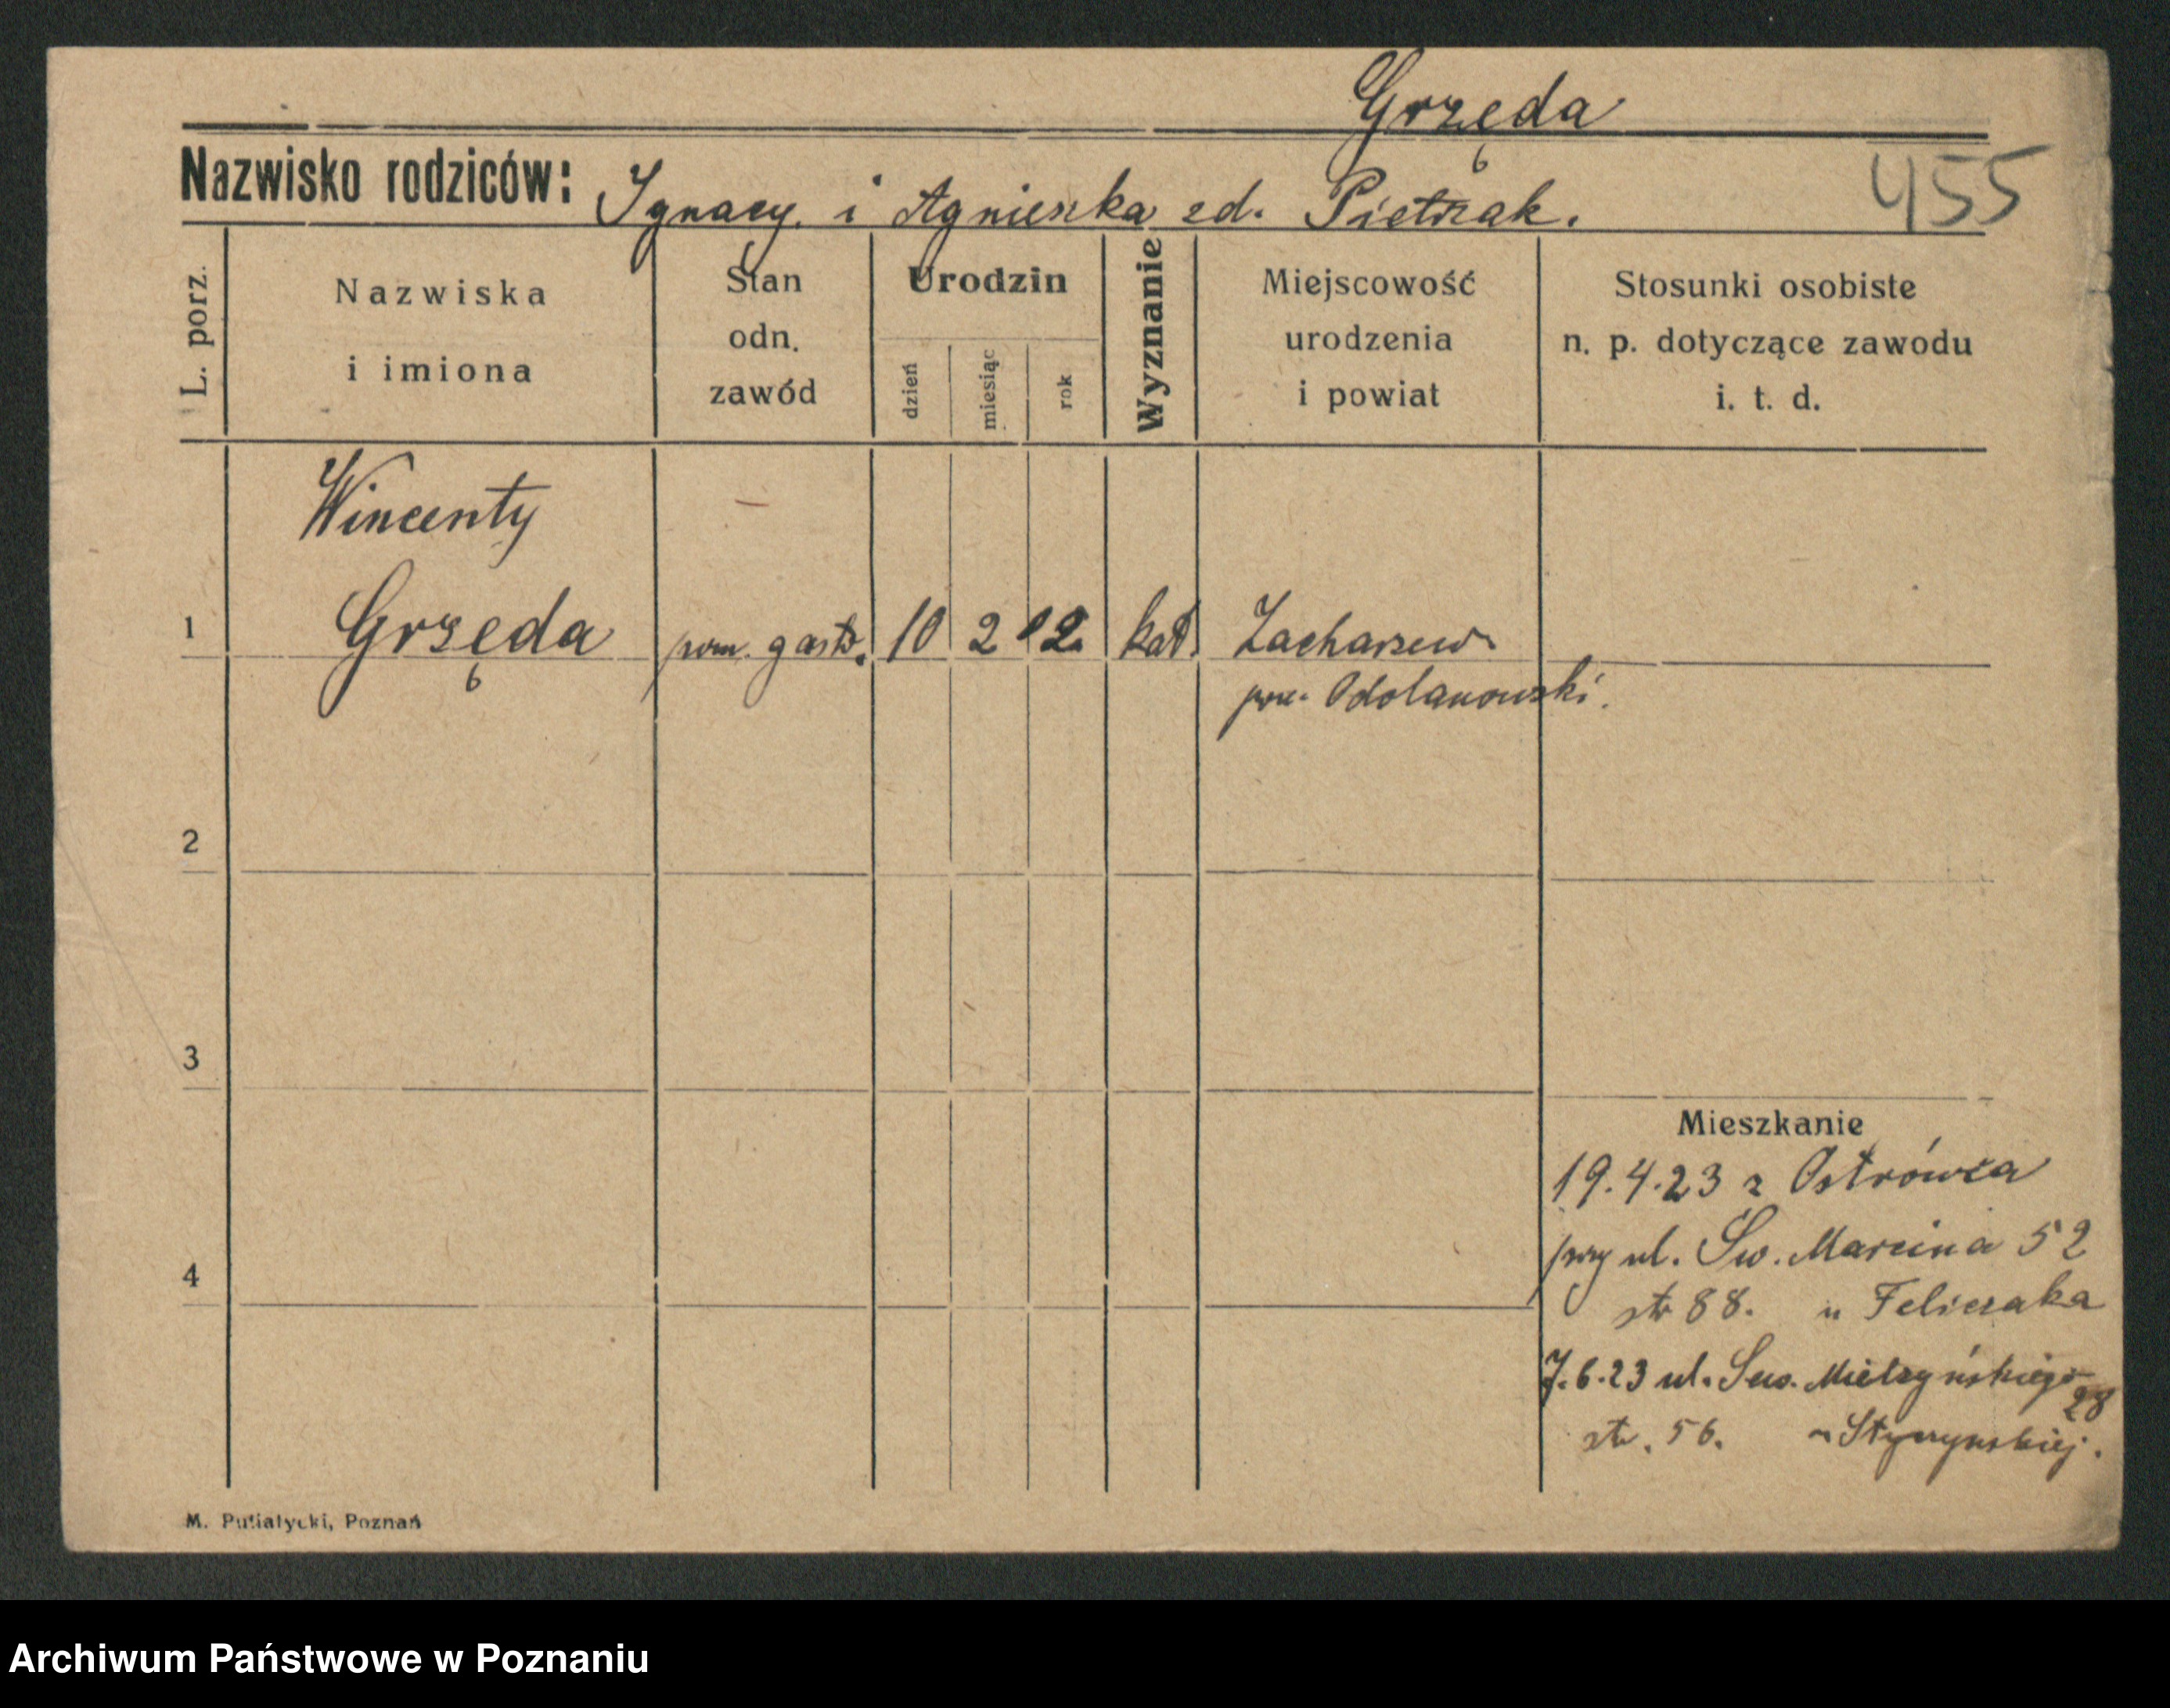 Grzęda
Nazwisko rodziców: Ignacy i Agnieszka zd. Pietrzak.
455
L. porz.
Nazwiska
i imiona
Stan
odn.
zawód
Urodzin
dzień
miesiąc
rok
Wyznanie
Miejscowość
urodzenia
i powiat
Stosunki osobiste
n. p. dotyczące zawodu
i. t. d.
Wincenty
1 Grzęda pom. gastr. 10 2 02 kat. Zacharzew
pow. Odolanowski.
2
3
Mieszkanie
19.4.23 z Ostrówca
przy ul. Św. Marcina 52
4
str 88. u Feliczaka
7.6.23 ul. Sew. Mielżyńskiego
28
str. 56. u Styczyńskiej.
M. Putiatycki, Poznań
Archiwum Państwowe w Poznaniu